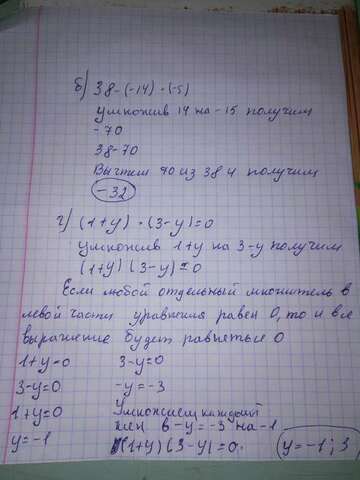 б) 38-(-14)·(-5)
умножив 14 на -15 получим
-70
38-70
Вычтем 70 из 38 и получим
-32
г) (1+y)·(3-y)=0
умножив 1+y на 3-y получим
(1+y)(3-y)=0
Если любой отдельный множитель в
левой части уравнения равен 0, то и все
выражение будет равняться 0
1+y=0 3-y=0
3-y=0 -y=-3
1+y=0 Умножием каждый
y=-1 член в -y=-3 на -1
(1+y)(3-y)=0. y=-1;3